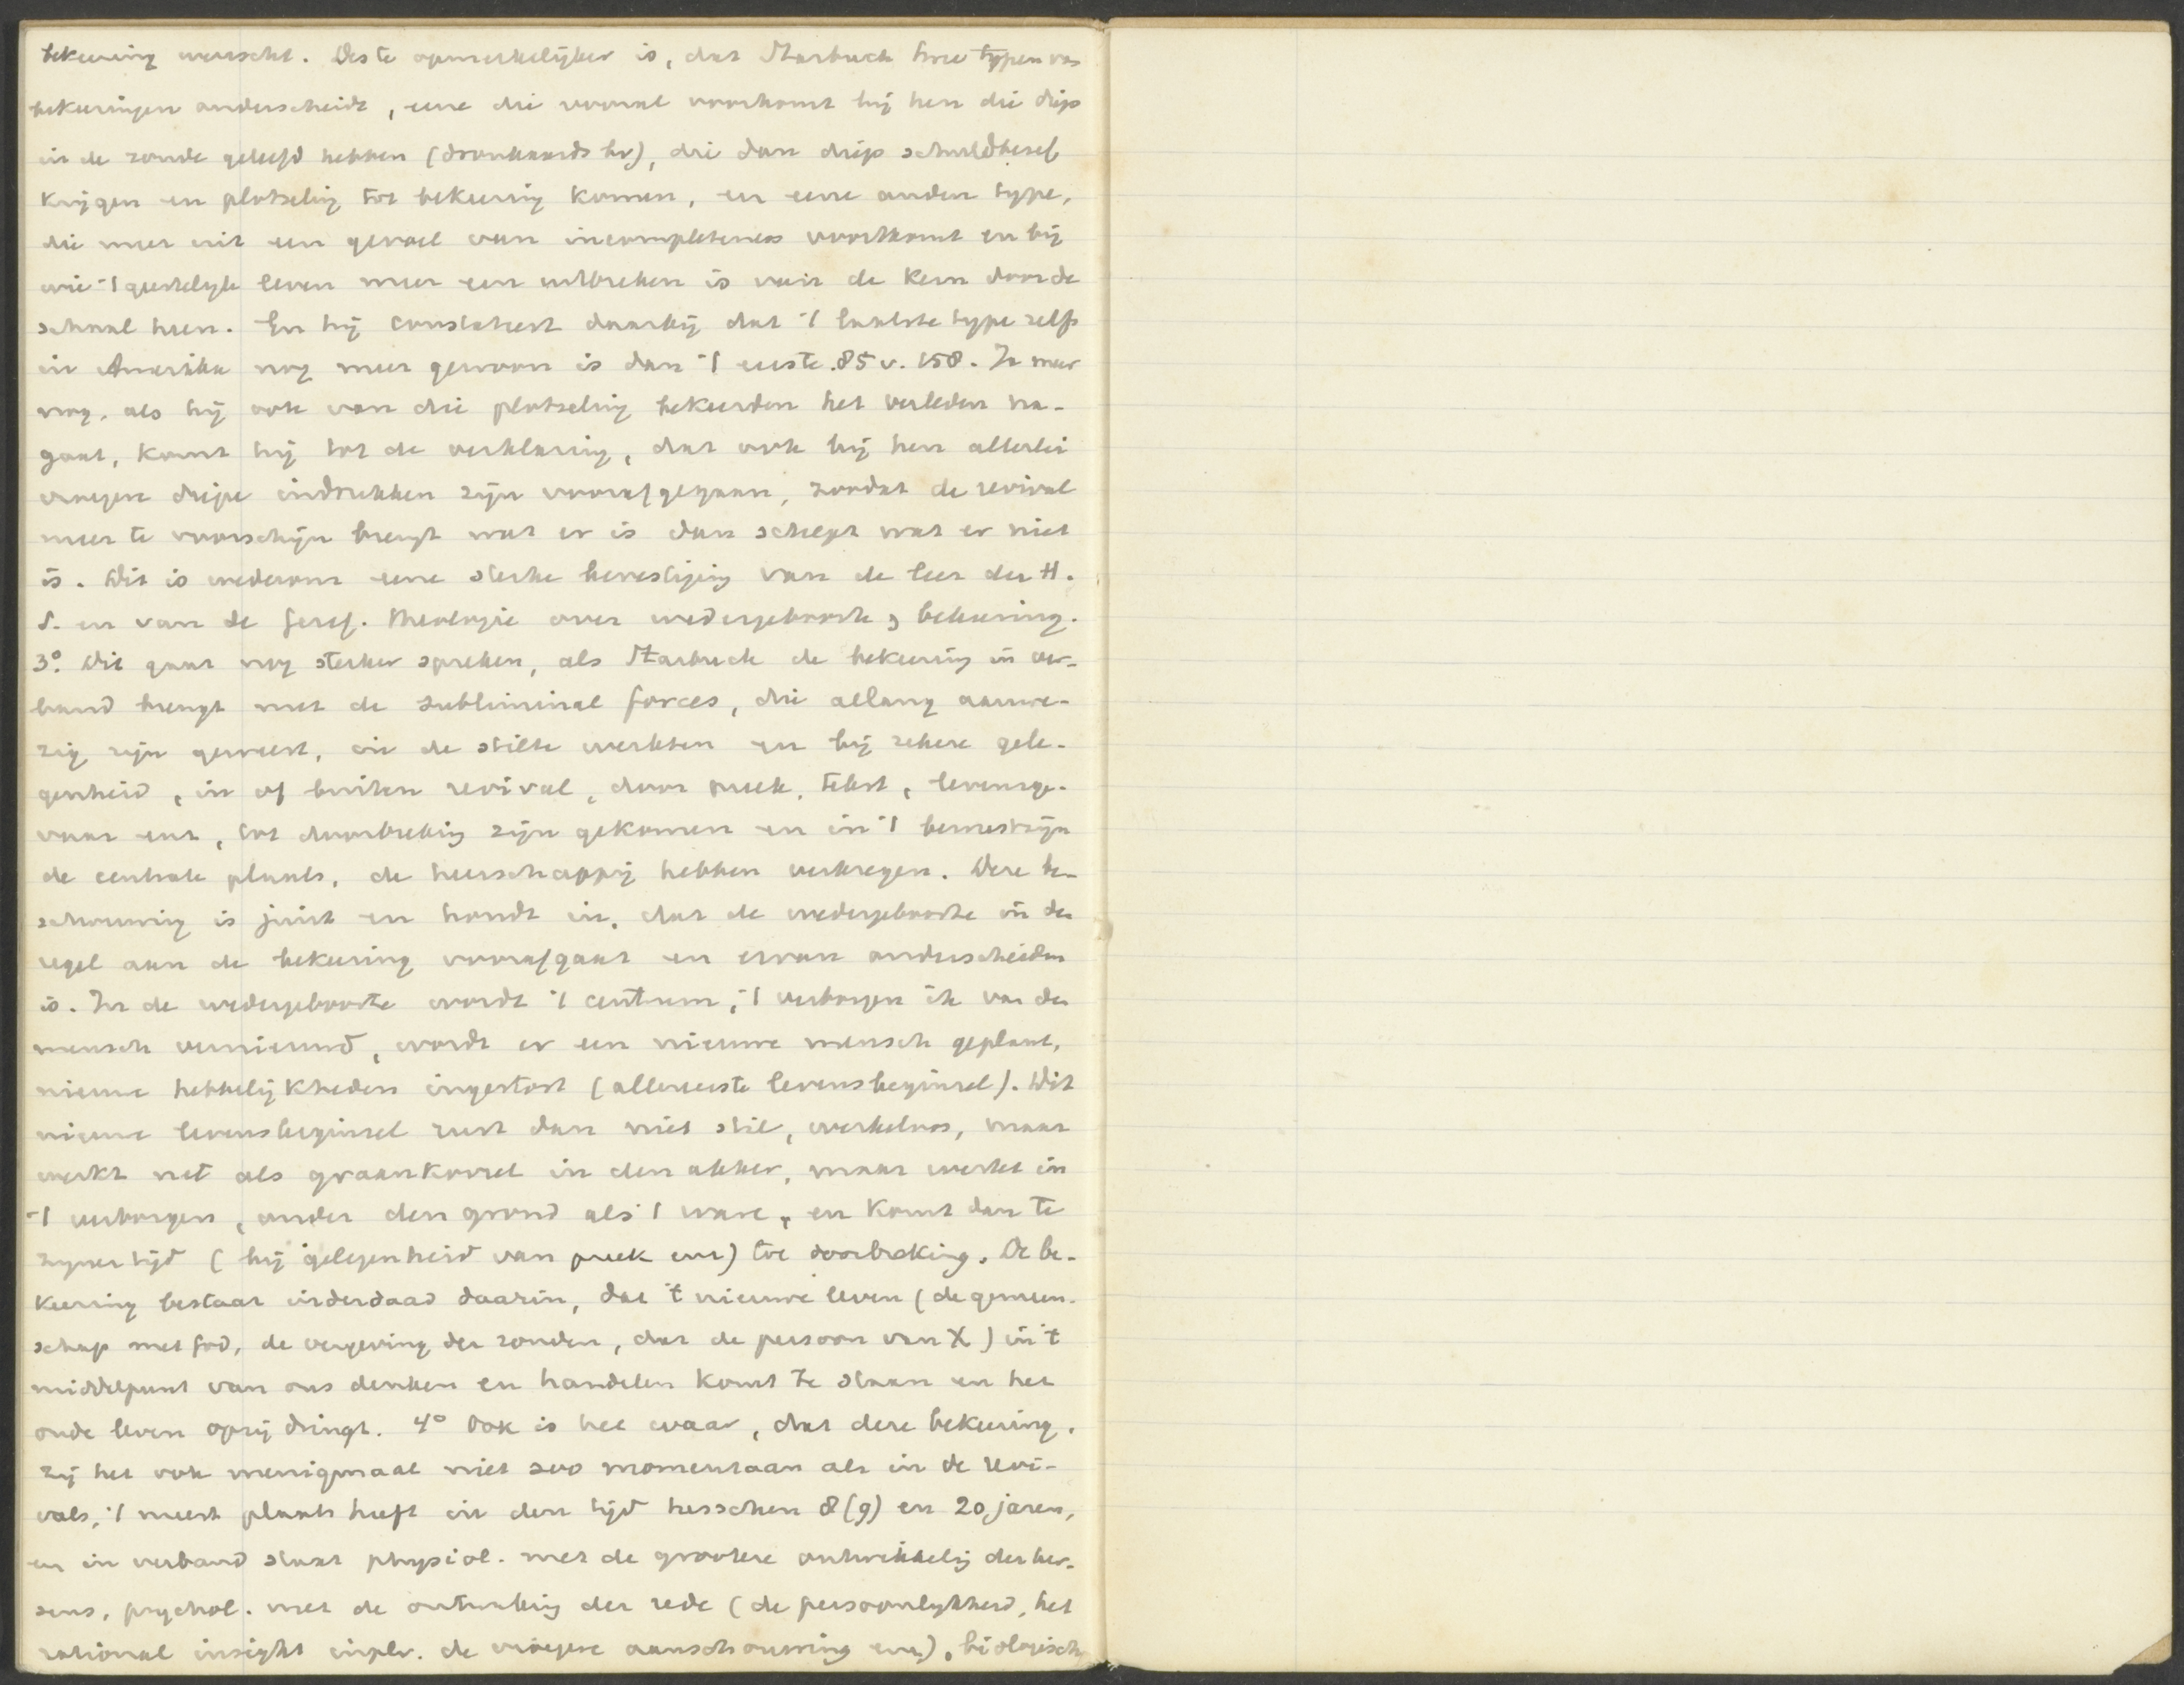 bekeering wenscht. Des te opmerkelijker is, dat Starbuck twee typen van
bekeeringen onderscheidt, eene die vooral voorkomt bij hen die diep
in de zonde geleefd hebben (dronkaards bv), die dan diep schuldbesef
krijgen en plotseling tot bekeering komen, en eene ander type,
die meer uit een gevoel van incompleteness voortkomt en bij
wie 't geestelyk leven meer een uitbreken is van de kern door de
schaal heen. En hij constateert daarbij dat 't laatste type zelfs
in Amerika nog meer gewoon is dan 't eerste. 85 v. 158. Ja meer
nog, als hij ook van die plotseling bekeerden het verleden na-
gaat, komt hij tot de verklaring, dat ook bij hen allerlei
vroegere diepe indrukken zijn voorafgegaan, zoodat de revival
meer te voorschijn brengt wat er is dan schept wat er niet
is. Dit is wederom eene sterke bevestiging van de leer der H.
S. en van de Geref. theologie over wedergeboorte & bekeering.
3°. Dit gaat nog sterker spreken, als Starbuck de bekeering in ver-
band brengt met de subliminal forces, die allang aanwe-
zig zijn geweest, in de stilte werkten en bij zekere gele-
genheid, in of buiten revival, door preek, tekst, levensge-
vaar enz, tot doorbreking zijn gekomen en in 't bewustzijn
de centrale plaats, de heerschappij hebben verkregen. Deze be-
schouwing is juist en houdt in, dat de wedergeboorte in den
regel aan de bekeering voorafgaat en ervan onderscheiden
is. In de wedergeboorte wordt 't centrum, 't verborgen ik van den
mensch vernieuwd, wordt er een nieuwe mensch geplant,
nieuwe hebbelijkheden ingestort (allereerste levensbeginsel). Dit
nieuwe levensbeginsel rust dan niet stil, werkeloos, maar
werkt net als graankorrel in den akker, maar werkt in
't verborgen, onder den grond als 't ware, en komt dan te
zyner tijd (bij gelegenheid van preek enz) tot doorbreking. De be-
keering bestaat inderdaad daarin, dat 't nieuwe leven (de gemeen-
schap met God, de vergeving der zonden, dat de persoon van X) in 't
middelpunt van ons denken en handelen komt te staan en het
oude leven opzij dringt. 4° Ook is het waar, dat deze bekeering,
zij het ook menigmaal niet zoo momentaan als in de revi-
vals, 't meest plaats heeft in den tijd tusschen 8 (9) en 20 jaren,
en in verband staat physiol. met de grootere ontwikkeling der her-
sens, psychol. met de ontwaking der rede (de persoonlykheid, het
rational insight inplv. de vroegere aanschouwing enz), biologisch